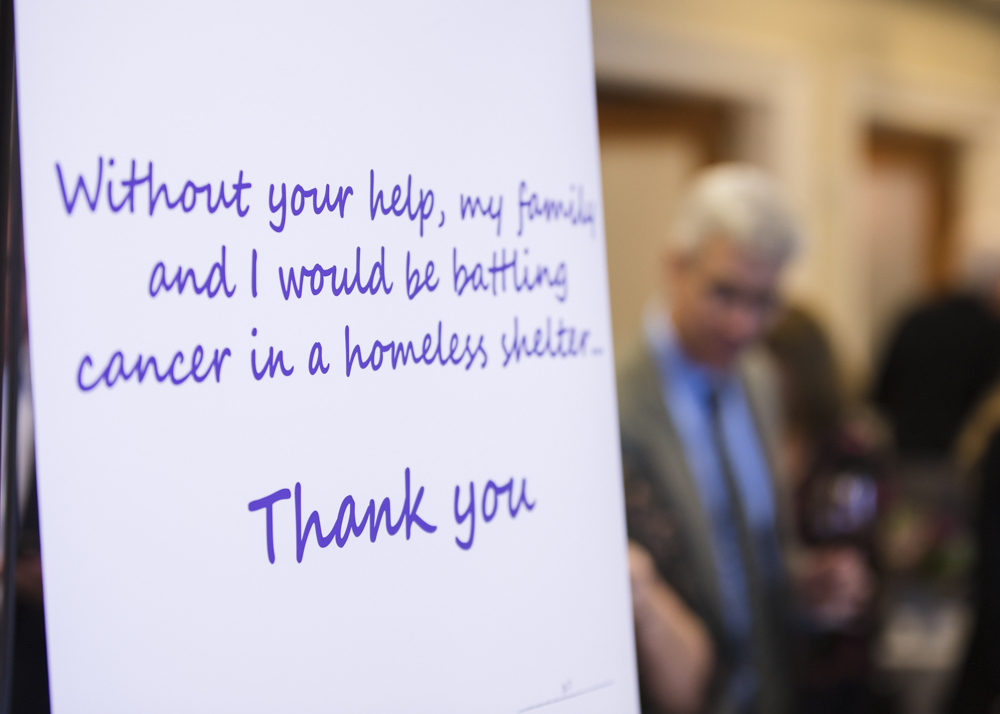 Without your help, my family
and I would be battling
cancer in a homeless shelter...
Thank you